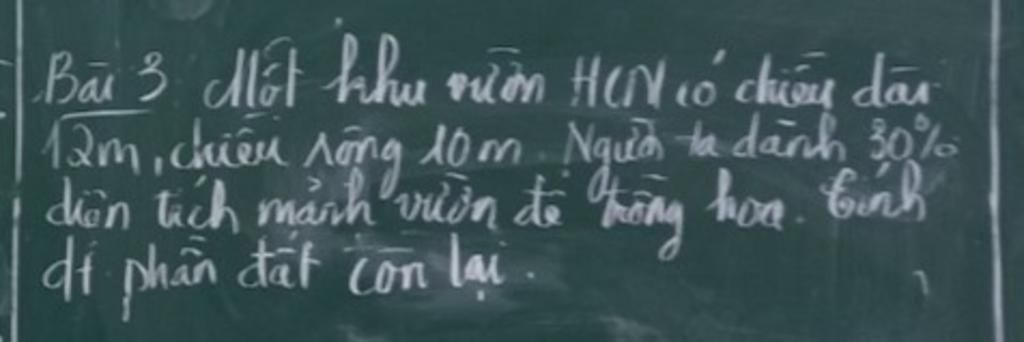 Bài 3 Một khu vườn HCN có chiều dài
12m, chiều rộng 10m. Người ta dành 30%
diện tích mảnh vườn để trồng hoa. Tính
dt phần đất còn lại.